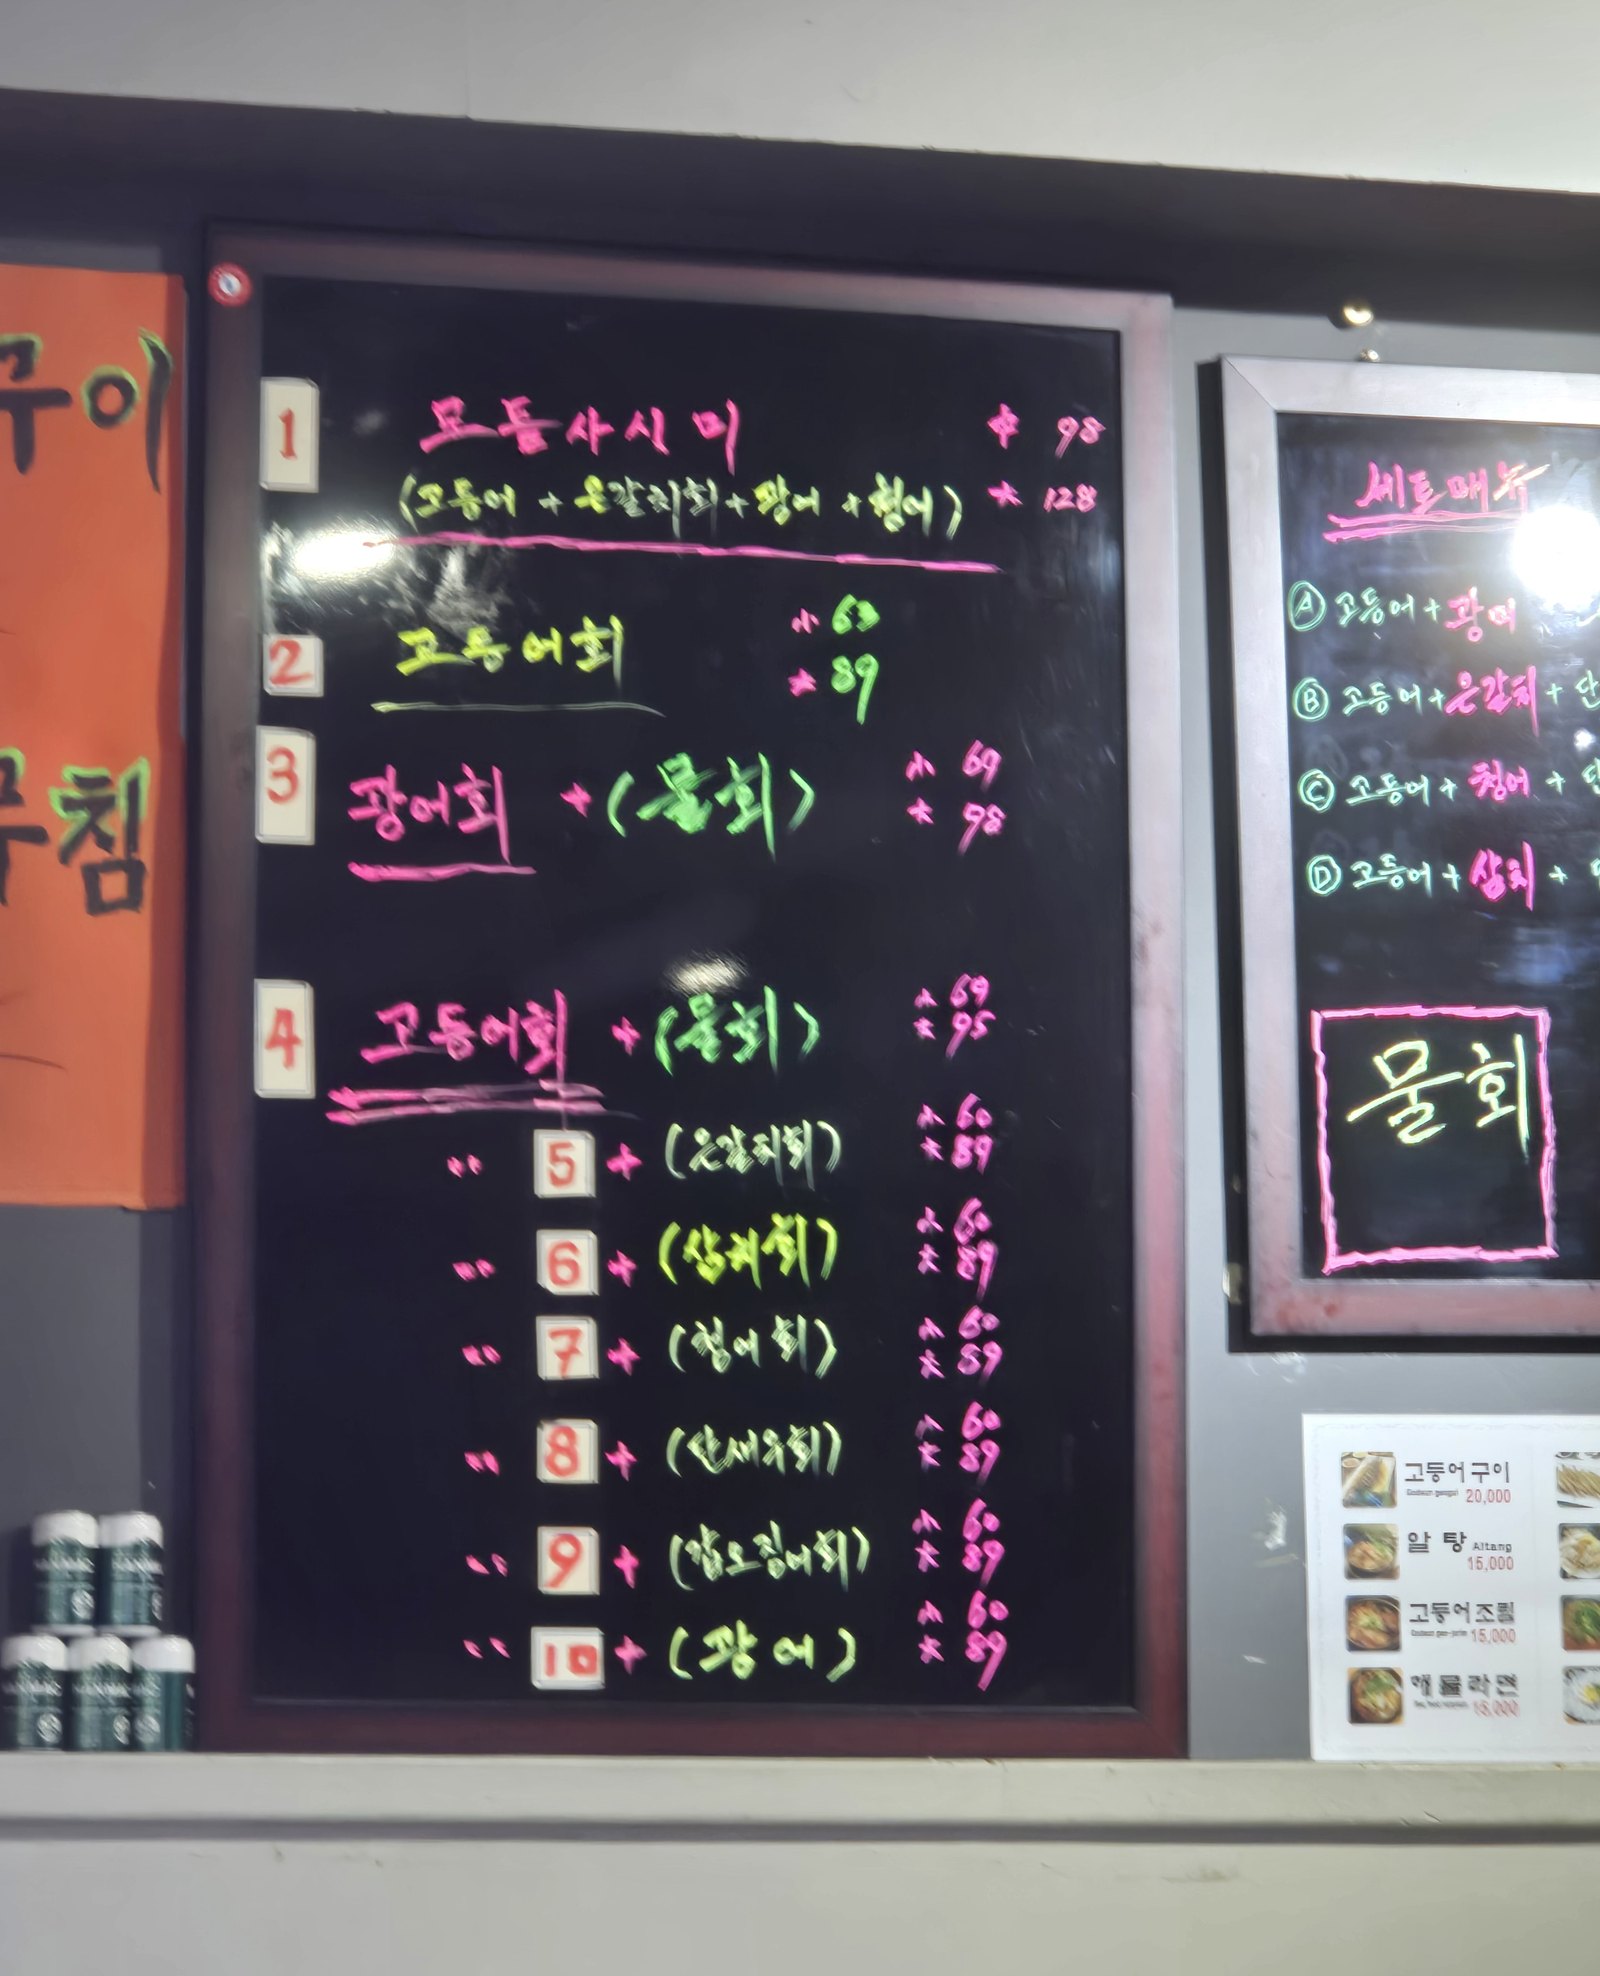 구이
무침
1 모듬사시미 中 98
(고등어 + 은갈치회 + 광어 + 청어) 大 128
2 고등어회 小 63
大 89
3 광어회 + (물회) 小 69
大 98
4 고등어회 + (물회) 小 69
大 95
〃 5 + (은갈치회) 小 60
大 89
〃 6 + (삼치회) 小 60
大 89
〃 7 + (청어회) 小 60
大 89
〃 8 + (단새우회) 小 60
大 89
〃 9 + (갑오징어회) 小 60
大 89
〃 10 + (광어) 小 60
大 89
세트메뉴
Ⓐ 고등어 + 광어
Ⓑ 고등어 + 은갈치 + 단
Ⓒ 고등어 + 청어 + 단
Ⓓ 고등어 + 삼치 +
물회
고등어구이
20,000
알탕 Altang
15,000
고등어조림
15,000
해물라면
15,000